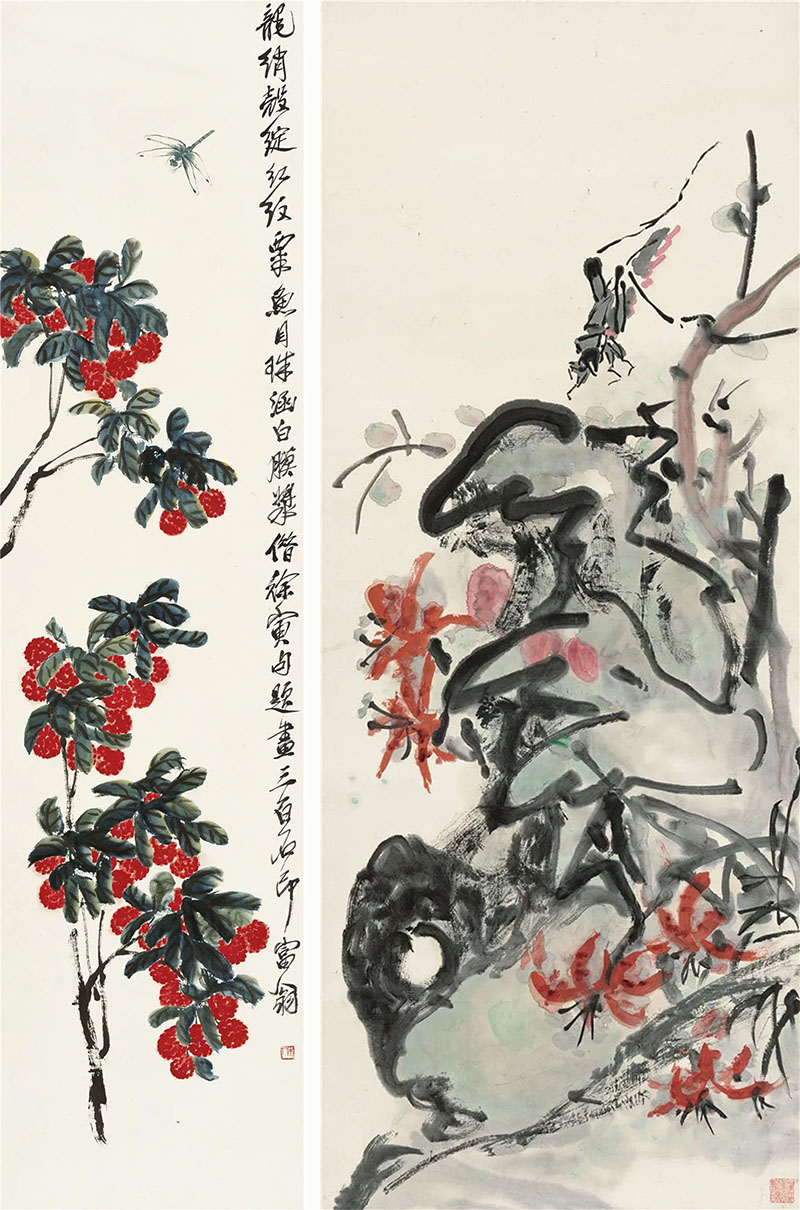 龍綃殼綻紅紋粟魚目珠涵白膜漿借徐寅句題畫三百石印富翁